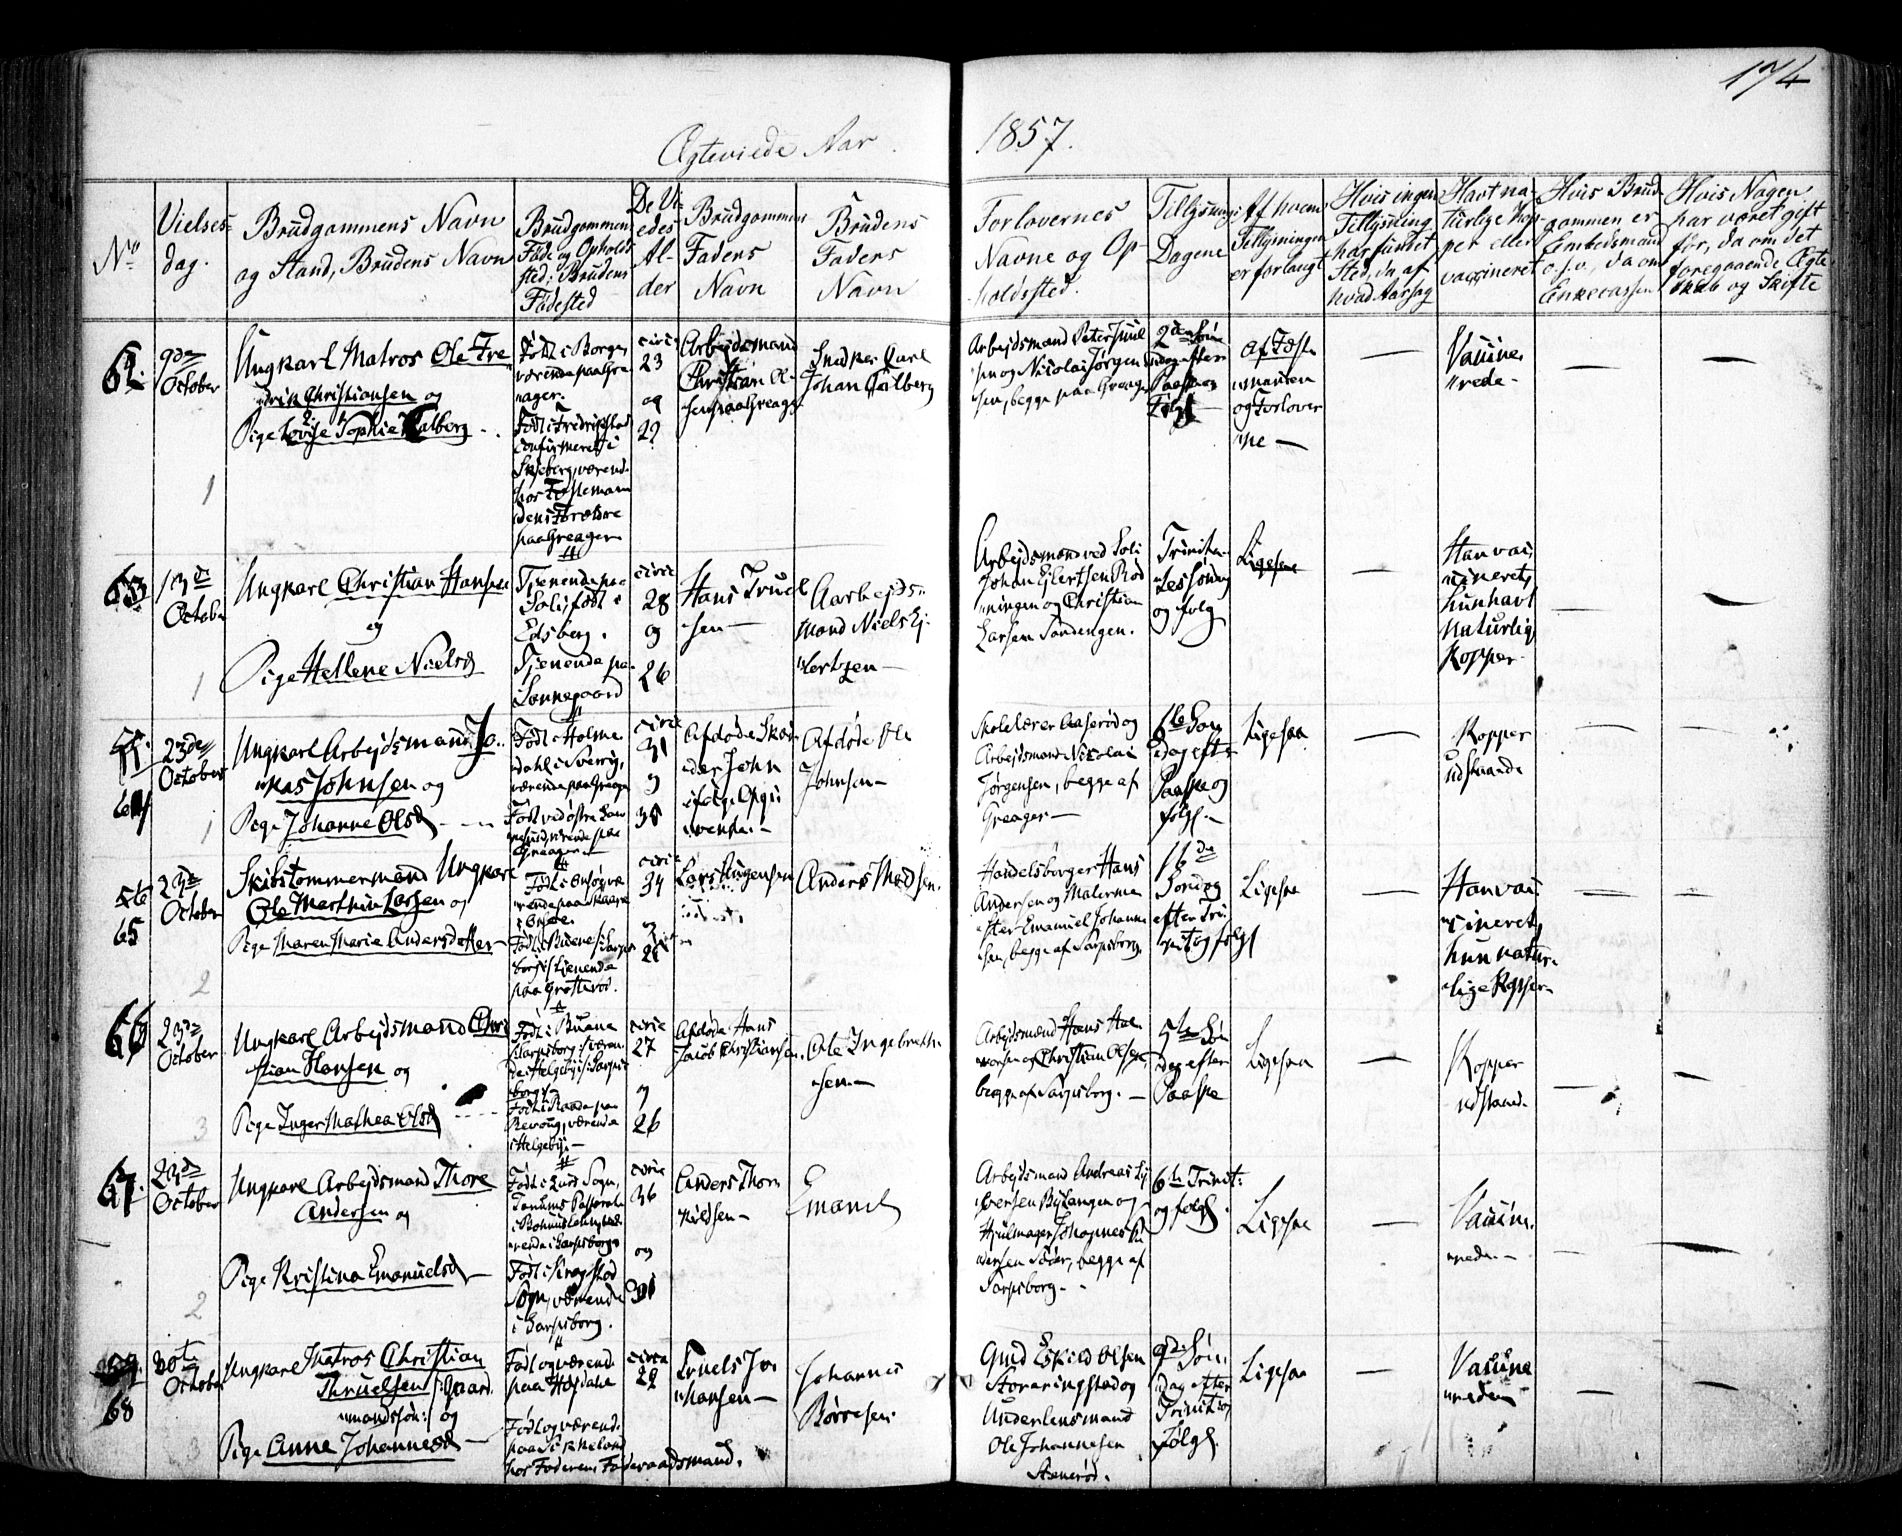 174
Ægteviede Aar 1857.
No
Vielses-
dag.
Brudgommens Navn
og Stand, Brudens Navn
Brudgommens
Føde og Opholds
sted, Brudens
Fødested
De Vi-
edes
Al-
der
Brudgommens
Faders
Navn
Brudens
Faders
Navn
Forlovernes
Navne og Op-
holdssted.
Tillysnings
Dagene
Af hvem
Tillysningen
er forlangt
Hvis ingen
Tillysning
har fundet
Sted, da af
hvad Aarsag
Havt na-
turlige Kop-
per eller
vaccineret
Hvis Brud-
gommen er
Embedsmand
o.s.v., da om
Enkecassen
Hvis Nogen
har været gift
før, da om det
foregaaende Ægte-
skab og Skifte
62.
9de
October
Ungkarl Matros Ole Fre
drik Christiansen og
Pige Lovise Sophie Calberg
1
Født i Borge,
værende paa Grea
ager.
Født i Fredrikstad
confirmeret i
Skjeberg, værend.
hos Fæsteman
dens Forældre
paa Greager.
circa
23
og
22
Arbejdsmand
Christian Ol-
sen paa Greager
Snedker Carl
Johan Calberg
Arbejdsmand Peter Juul
sen og Nicolai Jørgen
sen, begge paa Greager
2den Søn
dag efter
Paaske og
Følg.
af Fæste
manden
og Forlover
ne —
Vaccine
rede —
63
13de
October
Ungkarl Christian Hansen
og
Pige Hellene Nielsd
1
Tjenende paa
Soli, født i
Edsberg.
Tjenende paa
Sannegaard
circa
28
og
26
Hans Truel
sen —
Aarbejds-
mand Niels Ej-
lertzen —
Arbejdsmand ved Soli
Johan Ejlertsen Rød
ningen og Christian
Larsen Sandengen.
Trinita-
tes Søndag
og følg
Ligesaa
Han vac
cineret,
hun havt
naturlig
Kopper
64
23de
October
Ungkarl Arbejdsmand Jo-
nas Johnsen og
Pige Johanne Olsd
1
Født i Holme
dahl i Sverrig,
værende paa Greager
circa
31
og
38
Afdøde Skræd
der John
Afdøde Ole
Johnsen —
Skolelærer Aaserød og
Arbejdsmand Nicolai
Jørgensen, begge af
Greager —
6te Søn
dag efter
Paaske og
følg. —
Ligesaa
Kopper
udstaaende
65
23de
October
Skibstømmermand Ungkarl
Ole Marthin Larsen og
Pige Maren Marie Andersdatter
2
circa
34
Anders Madsen.
Handelsborger Hans
Andersen og Malerme
ster Emanuel Johanne
sen, begge af Sarpsborg
16de
Søndag
efter Tri
nit og følg
Ligesaa
Han vac
cineret,
hun natur-
lige Kopper
66
23de
October
Ungkarl Arbejdsmand Chri
stian Hansen og
Pige Inger Mathea Olsd
3
circa
27
og
26
Afdøde Hans
Jacob Christiansen
Ole Ingebreth-
sen —
Arbejdsmænd Hans Hal-
vorsen og Christian Olsen,
begge af Sarpsborg. —
5te Søn
dag efter
Paaske
Ligesaa
Kopper
udstand.
67.
23de
October
Ungkarl Arbejdsmand Thore
Andersen og
Pige Kristina Emanuelsd —
2
Født i Krogstad
Sogn, værende
i Sarpsborg.
circa
36
og
Anders Thor
kildsen —
Emanuel
Arbejdsmand Andreas Ej
Hjulmager Johannes
begge af
Sarpsborg. —
6te Trinit:
og følg.
Ligesaa
Vaccine
rede. —
68
30te
October
Ungkarl Matros Christian
Thruelsen /: Gaard
mandssøn:/ og
Pige Anne Johannesd —
3
Født og værend.
paa Hafdahl
Født og værend.
hos Faderen, Føderaadsmand.
circa
29
Truels Jo
hansen —
Johannes
Børresen.
Gmd Eskild Olsen
Storaringstad og
Underlensmand
Ole Johannesen
Stenerød.
9de Søn
dag efter
Trinit og
følg.
Ligesaa
Vaccine
rede